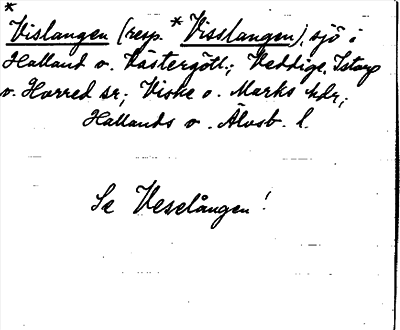 * Vislangen (resp. * Visslangen), sjö i
Halland o. Västergötl.; Veddige, Istorp
o. Horred sr; Viske o. Marks hdr;
Hallands o. Älvsb. l.
Se Veselången!